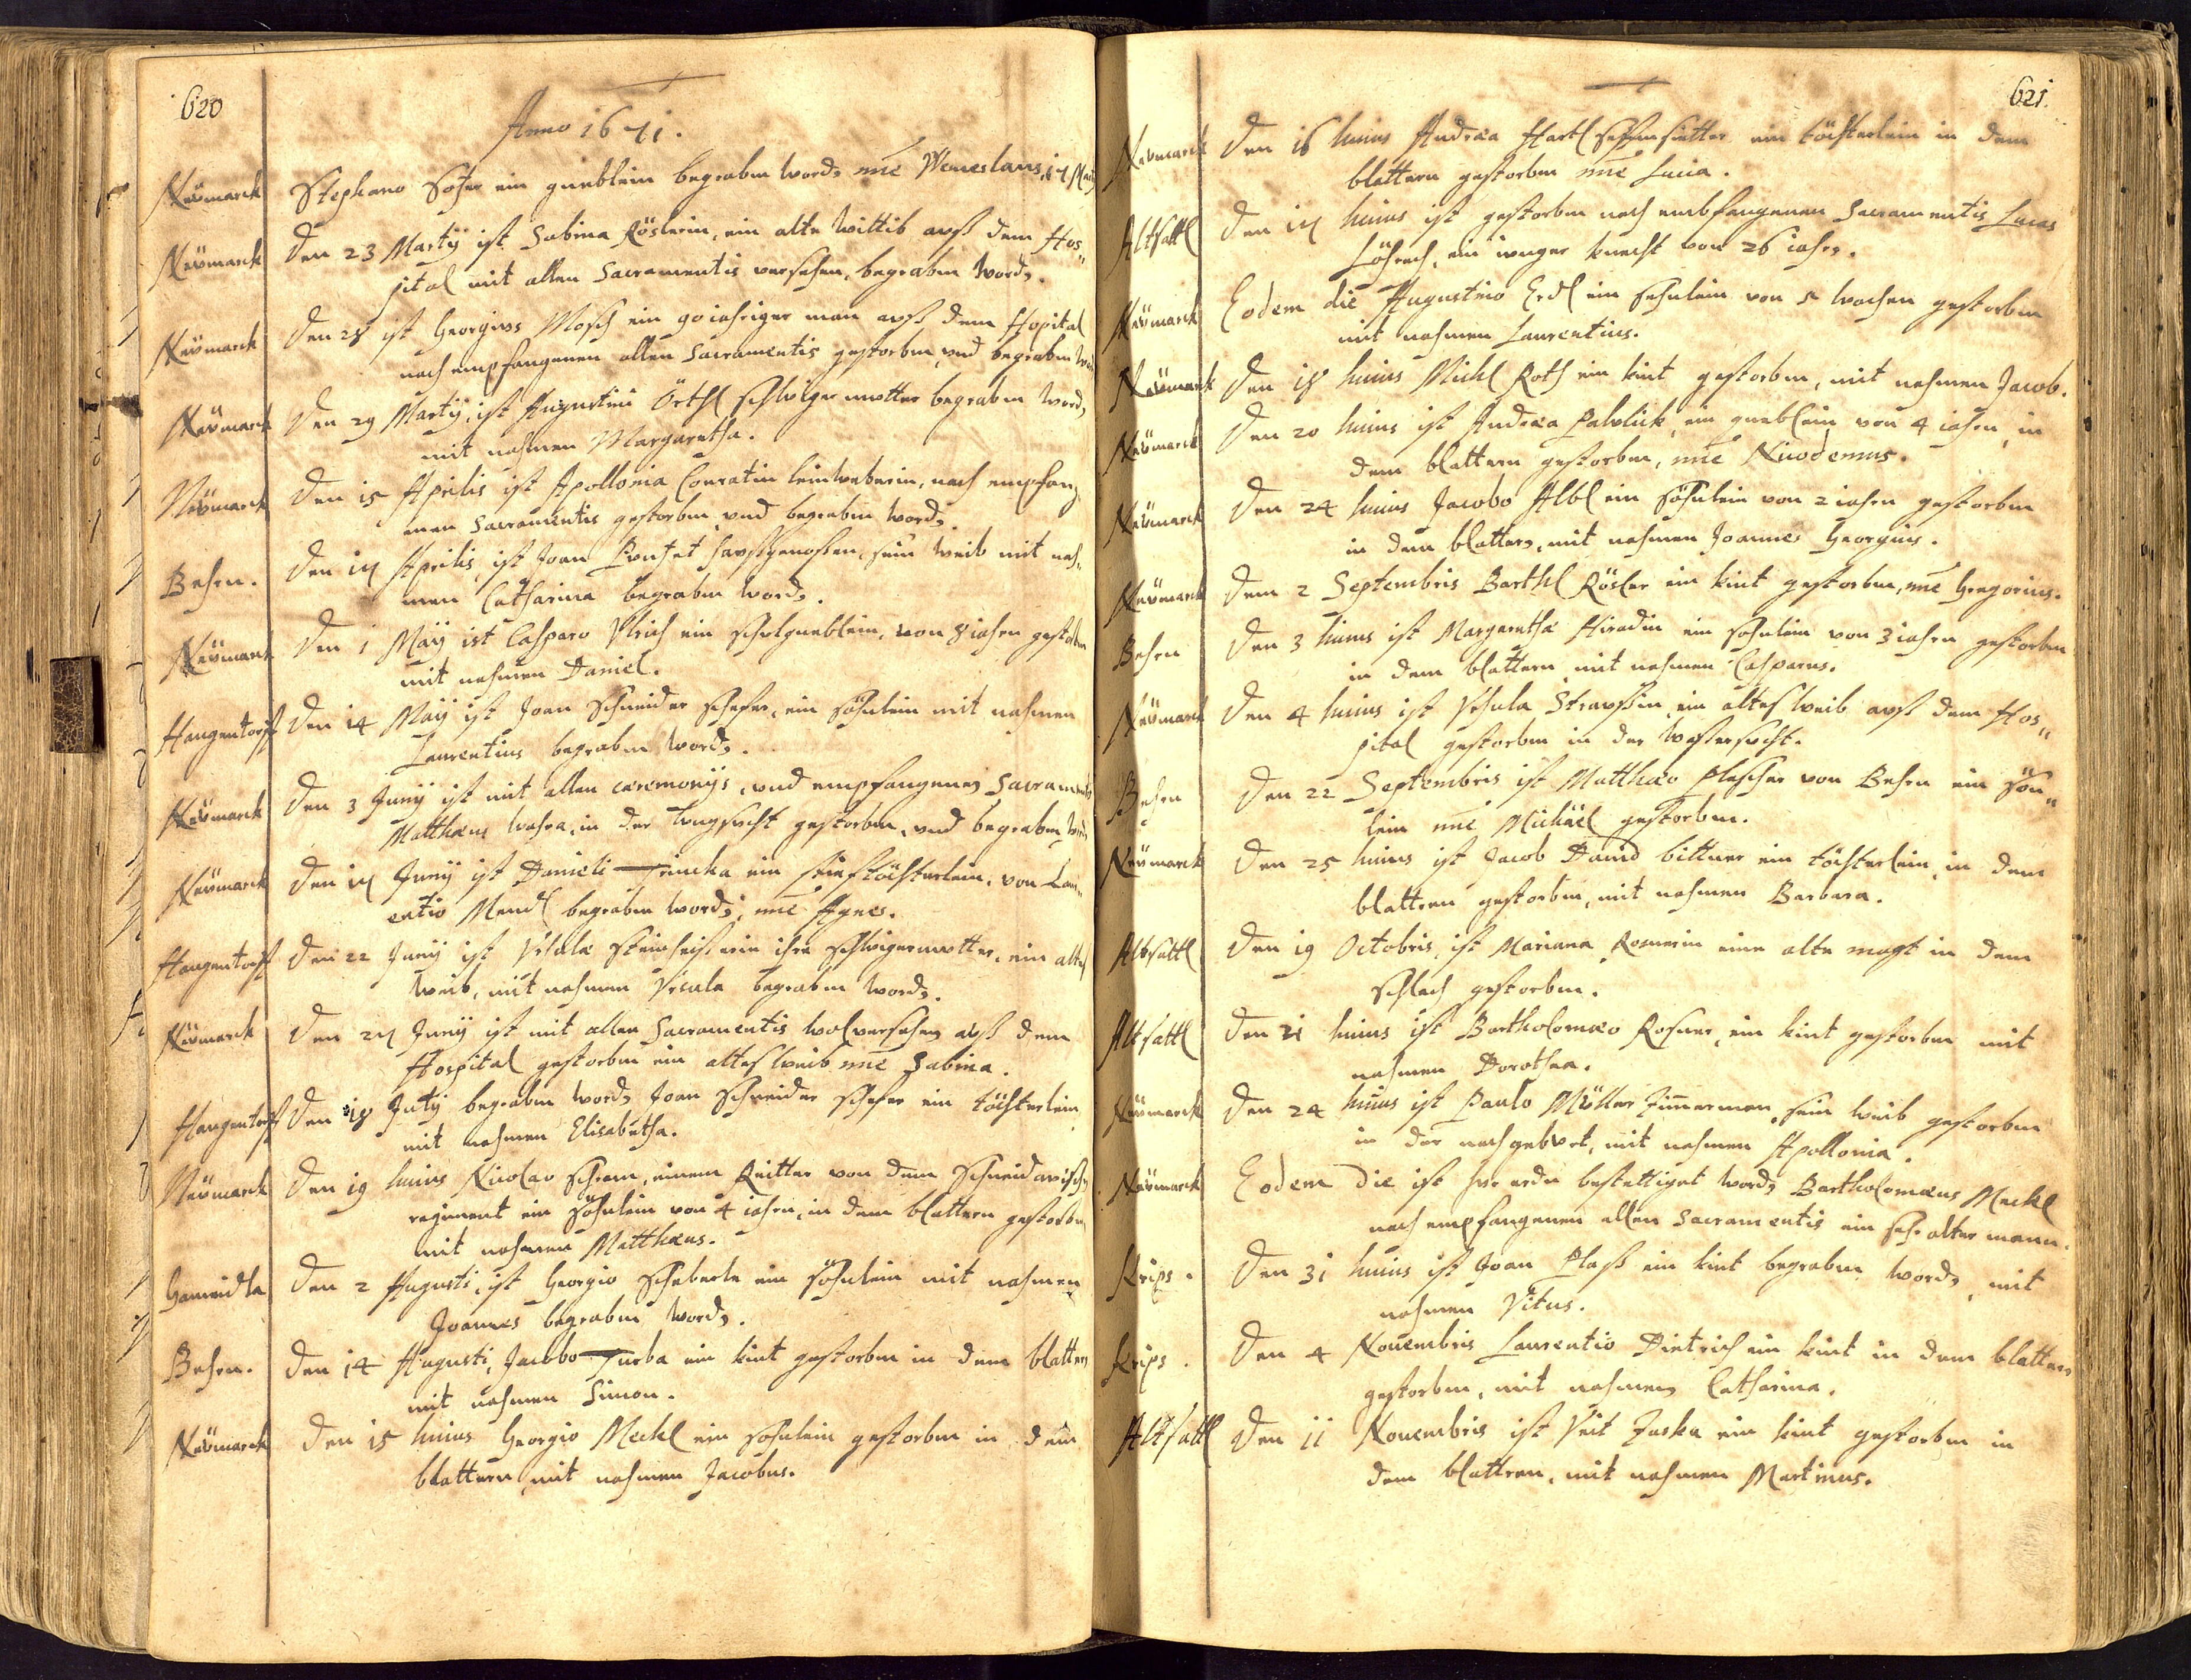 620
Anno 1671.
Neümarck Stephano Söser ein gneblein begraben word, nõie Wenceslaus, 17 Marty
Neümarck Den 23 Martÿ ist Sabina Röslerin, ein alte wittib auß dem Hos„
pital mit allen Sacramentis versehen, begraben word.
Neümarck Den 28 ist Georgius Mosch ein 90 iahriger man auß dem Hospital
nach empfangenen allen Sacramentis gestorben und begraben
Neümarck Den 29 Martÿ, ist Augustini Örthl schwigermutter begraben word,
mit nahmen Margaretha.
Neümarck Den 15 Aprilis ist Apollonia Conratin leinweberin, nach empfang„
enen Sacramentis gestorben und begraben word.
Behrn. Den 17 Aprilis, ist Joan haußgenoßen, sein weib mit nah„
men Catharina begraben word.
Neümarck Den 1 Maÿ ist Casparo Ulrich ein schulgneblein, von 8 iahrn gestorben
mit nahmen Daniel.
Hangentorff Den 14 Maÿ ist Joan Schneider schefer, ein söhnlein mit nahmen
Laurentius begraben word.
Neümarck Den 3 Junÿ ist mit allen ceremonÿs, und empfangenen Sacramentis
Matthæus in der lungsucht gestorben, und begraben word
Neümarck Den 17 Junÿ ist Danieli ein stieftöchterlein, von Lau„
entio Mendl begraben word, nõie Agnes.
Hangentorff Den 22 Junÿ ist Ursula ihre schwigermutter, ein altes
weib, mit nahmen Ursula begraben word.
Neümarck Den 27 Junÿ ist mit allen Sacramentis wolversehen auß dem
Hospital gestorben ein altes weib nõie Sabina.
Hangentorff Den 18 Julÿ begraben word Joan Schneider schefer ein töchterlein
mit nahmen Elisabetha.
Neümarck Den 19 huius Nicolao schram, einem Reitter von dem
regiment ein söhnlein von 4 iahrn, in dem blattern gestorben
mit nahmen Matthæus.
Den 2 Augusti, ist Georgio Scheberle ein söhnlein mit nahmen
Joannes begraben word.
Behrn. Den 14 Augusti, Jacobo Zurba ein kint gestorben in dem blattern
mit nahmen Simon.
Neümarck Den 15 huius Georgio Meckl ein sohnlein gestorben in dem
blattern mit nahmen Jacobus.
621.
Neümarck Den 16 huius Andrea Hartl ein töchterlein in dem
blattern gestorben nõie Lucia.
Altsattl Den 17 huius ist gestorben nach embfangenen Sacramentis Lucas
ein iunger knecht von 26 iahrn.
Neümarck Eodem die Augustino Erdl ein sohnlein von 5 wochen gestorben
mit nahmen Laurentius.
Neümarck Den 18 huius Michl Roth ein kint gestorben, mit nahmen Jacob.
Neümarck Den 20 huius ist Andrea Palvlick, ein gneblein von 4 iahrn, in
dem blattern gestorben, nõie Nicodemus.
Neümarck Den 24 huius Jacobo Albl ein söhnlein von 2 iahrn gestorben
in dem blattern, mit nahmen Joannes Georgius.
Neümarck Dem 2 Septembris Barthl Rösler ein kint gestorben, nõie Gregorius.
Behrn Den 3 huius ist Margaretha Hiradin ein sohnlein von 3 iahrn gestorben
in dem blattern mit nahmen Casparus.
Neümarck Den 4 huius ist Ursula Straußin, ein altes weib auß dem Hos„
pital gestorben in der wassersucht.
Behrn Den 22 Septembris ist Matthæo Plescher von Behrn ein sön„
lein nõie Michäel gestorben.
Neümarck Den 25 huius ist Jacob David bittner ein töchterlein, in dem
blattren gestorben, mit nahmen Barbara.
Altsattl Den 19 Octobris, ist Mariana Romerin eine alte magt in dem
schlach gestorben.
Altsattl Den 21 huius ist Bartholomæo Rosner, ein kint gestorben mit
nahmen Dorothea.
Neümarck Den 24 huius ist Paulo Müller Zimerman, sein weib gestorben
in der nachgeburt, mit nahmen Apollonia.
Neümarck Eodem Die ist zur erdn bestettiget word, Bartholomæus Meckl
nach empfangenen allen Sacramentis ein sehr alter mann.
Krips. Den 31 huius ist Joan Plaß ein kint begraben word, mit
nahmen Vitus.
Krips. Den 4 Nouembris Laurentio Dietrich ein kint in dem blattern
gestorben, mit nahmen Catharina.
Altsattl Den 11 Nouembris ist Veit Jaska ein kint gestorben in
dem blattren, mit nahmen Martinus.